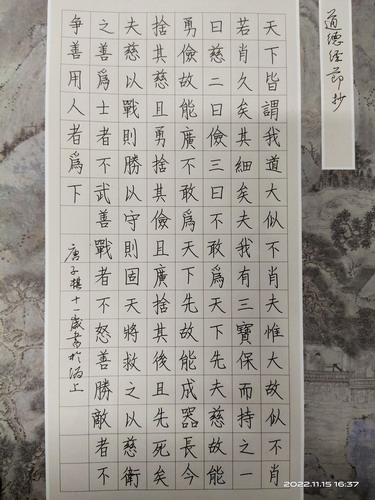 道德经節抄
天下皆謂我道大似不肖夫惟大故似不肖
若肖久矣其細矣夫我有三寶保而持之一
曰慈二曰儉三曰不敢爲天下先夫慈故能
勇儉故能廣不敢爲天下先故能成器長今
捨其慈且勇捨其儉且廣捨其後且先死矣
夫慈以戰則勝以守則固天將救之以慈衛
之善爲士者不武善戰者不怒善勝敵者不
争善用人者爲下
庚子十一歲書於上
2022.11.15 16:37